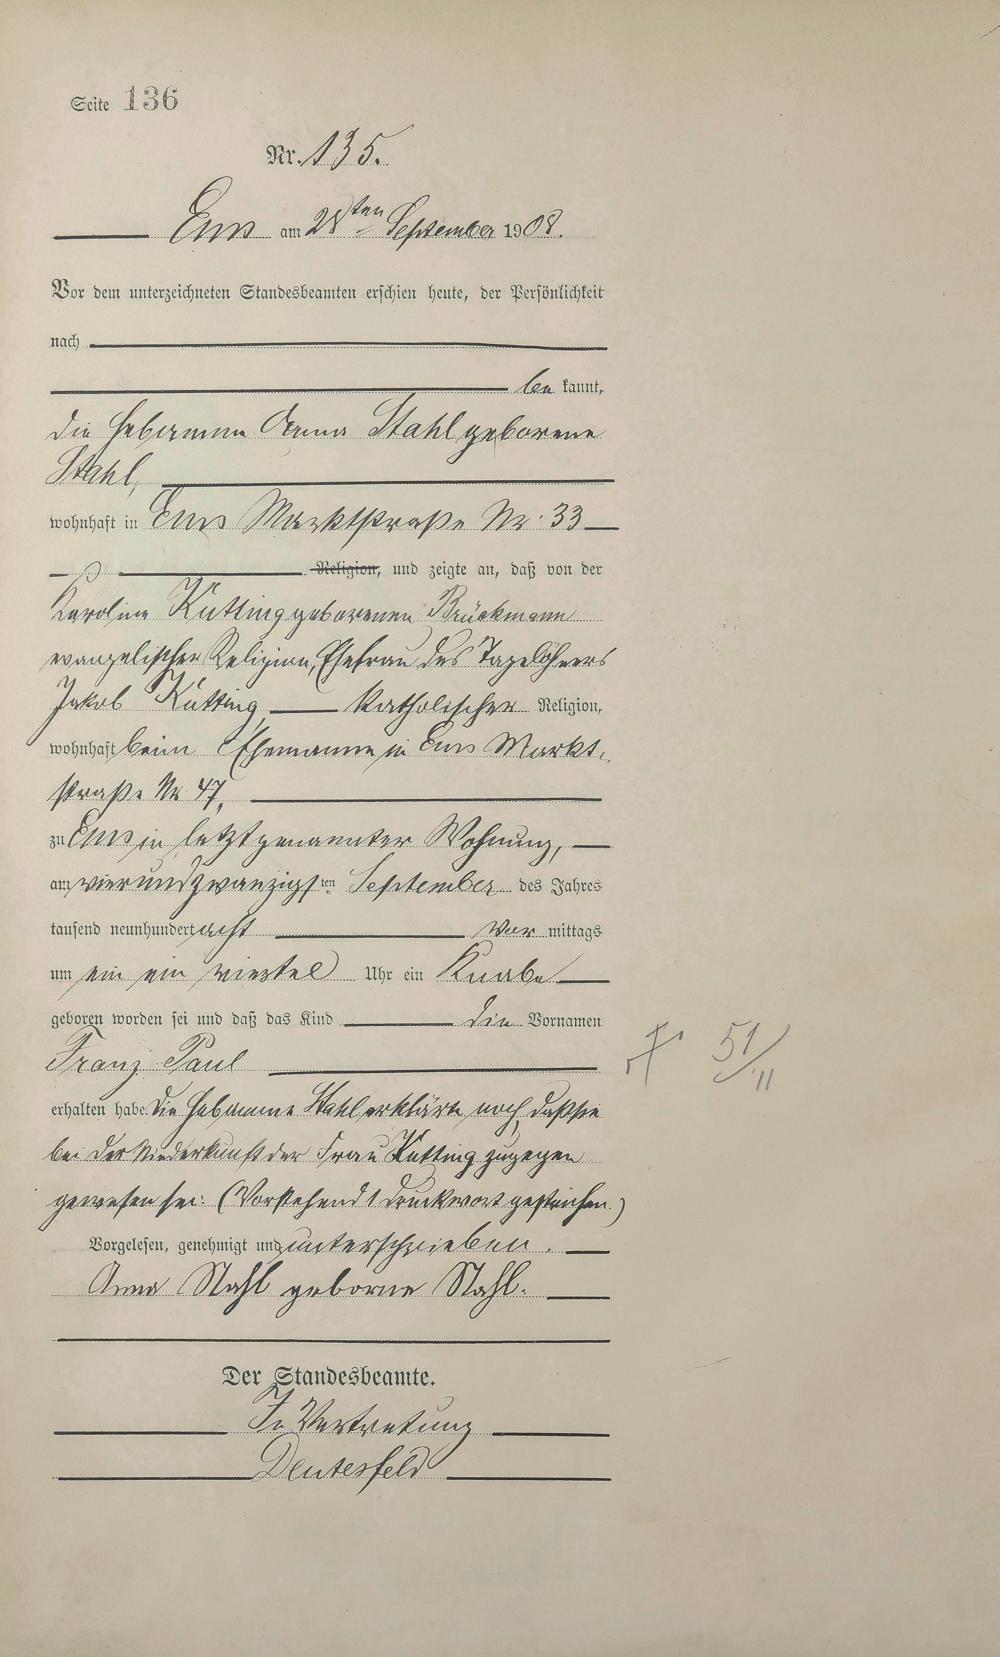 Seite 136
Nr. 135.
Ems am 28ten September 1908.
Vor dem unterzeichneten Standesbeamten erschien heute, der Persönlichkeit
nach
be kannt,
die Hebamme Anna Stahl geborene
Stahl,
wohnhaft in Ems Marktstraße Nr. 33
Religion, und zeigte an, daß von der
Karoline Kutting geborenen Brückmann
evangelischer Religion, Ehefrau des Tagelöhners
Jakob Kutting katholischer Religion,
wohnhaft beim Ehemanne in Ems Markt-
straße Nr 47,
zu Ems in letztgenannter Wohnung,
am vierundzwanzigsten September des Jahres
tausend neunhundert acht vor mittags
um ein ein viertel Uhr ein Knabe
geboren worden sei und daß das Kind die Vornamen
Franz Paul
erhalten habe. Die Hebamme Stahl erklärte noch, daß sie
bei der Niederkunft der Frau Kutting zugegen
gewesen sei. (Vorstehend 1 Druckwort gestrichen.)
Vorgelesen, genehmigt und unterschrieben.
Anna Stahl geborne Stahl.
Der Standesbeamte.
In Vertretung
Deutesfeld
51/11